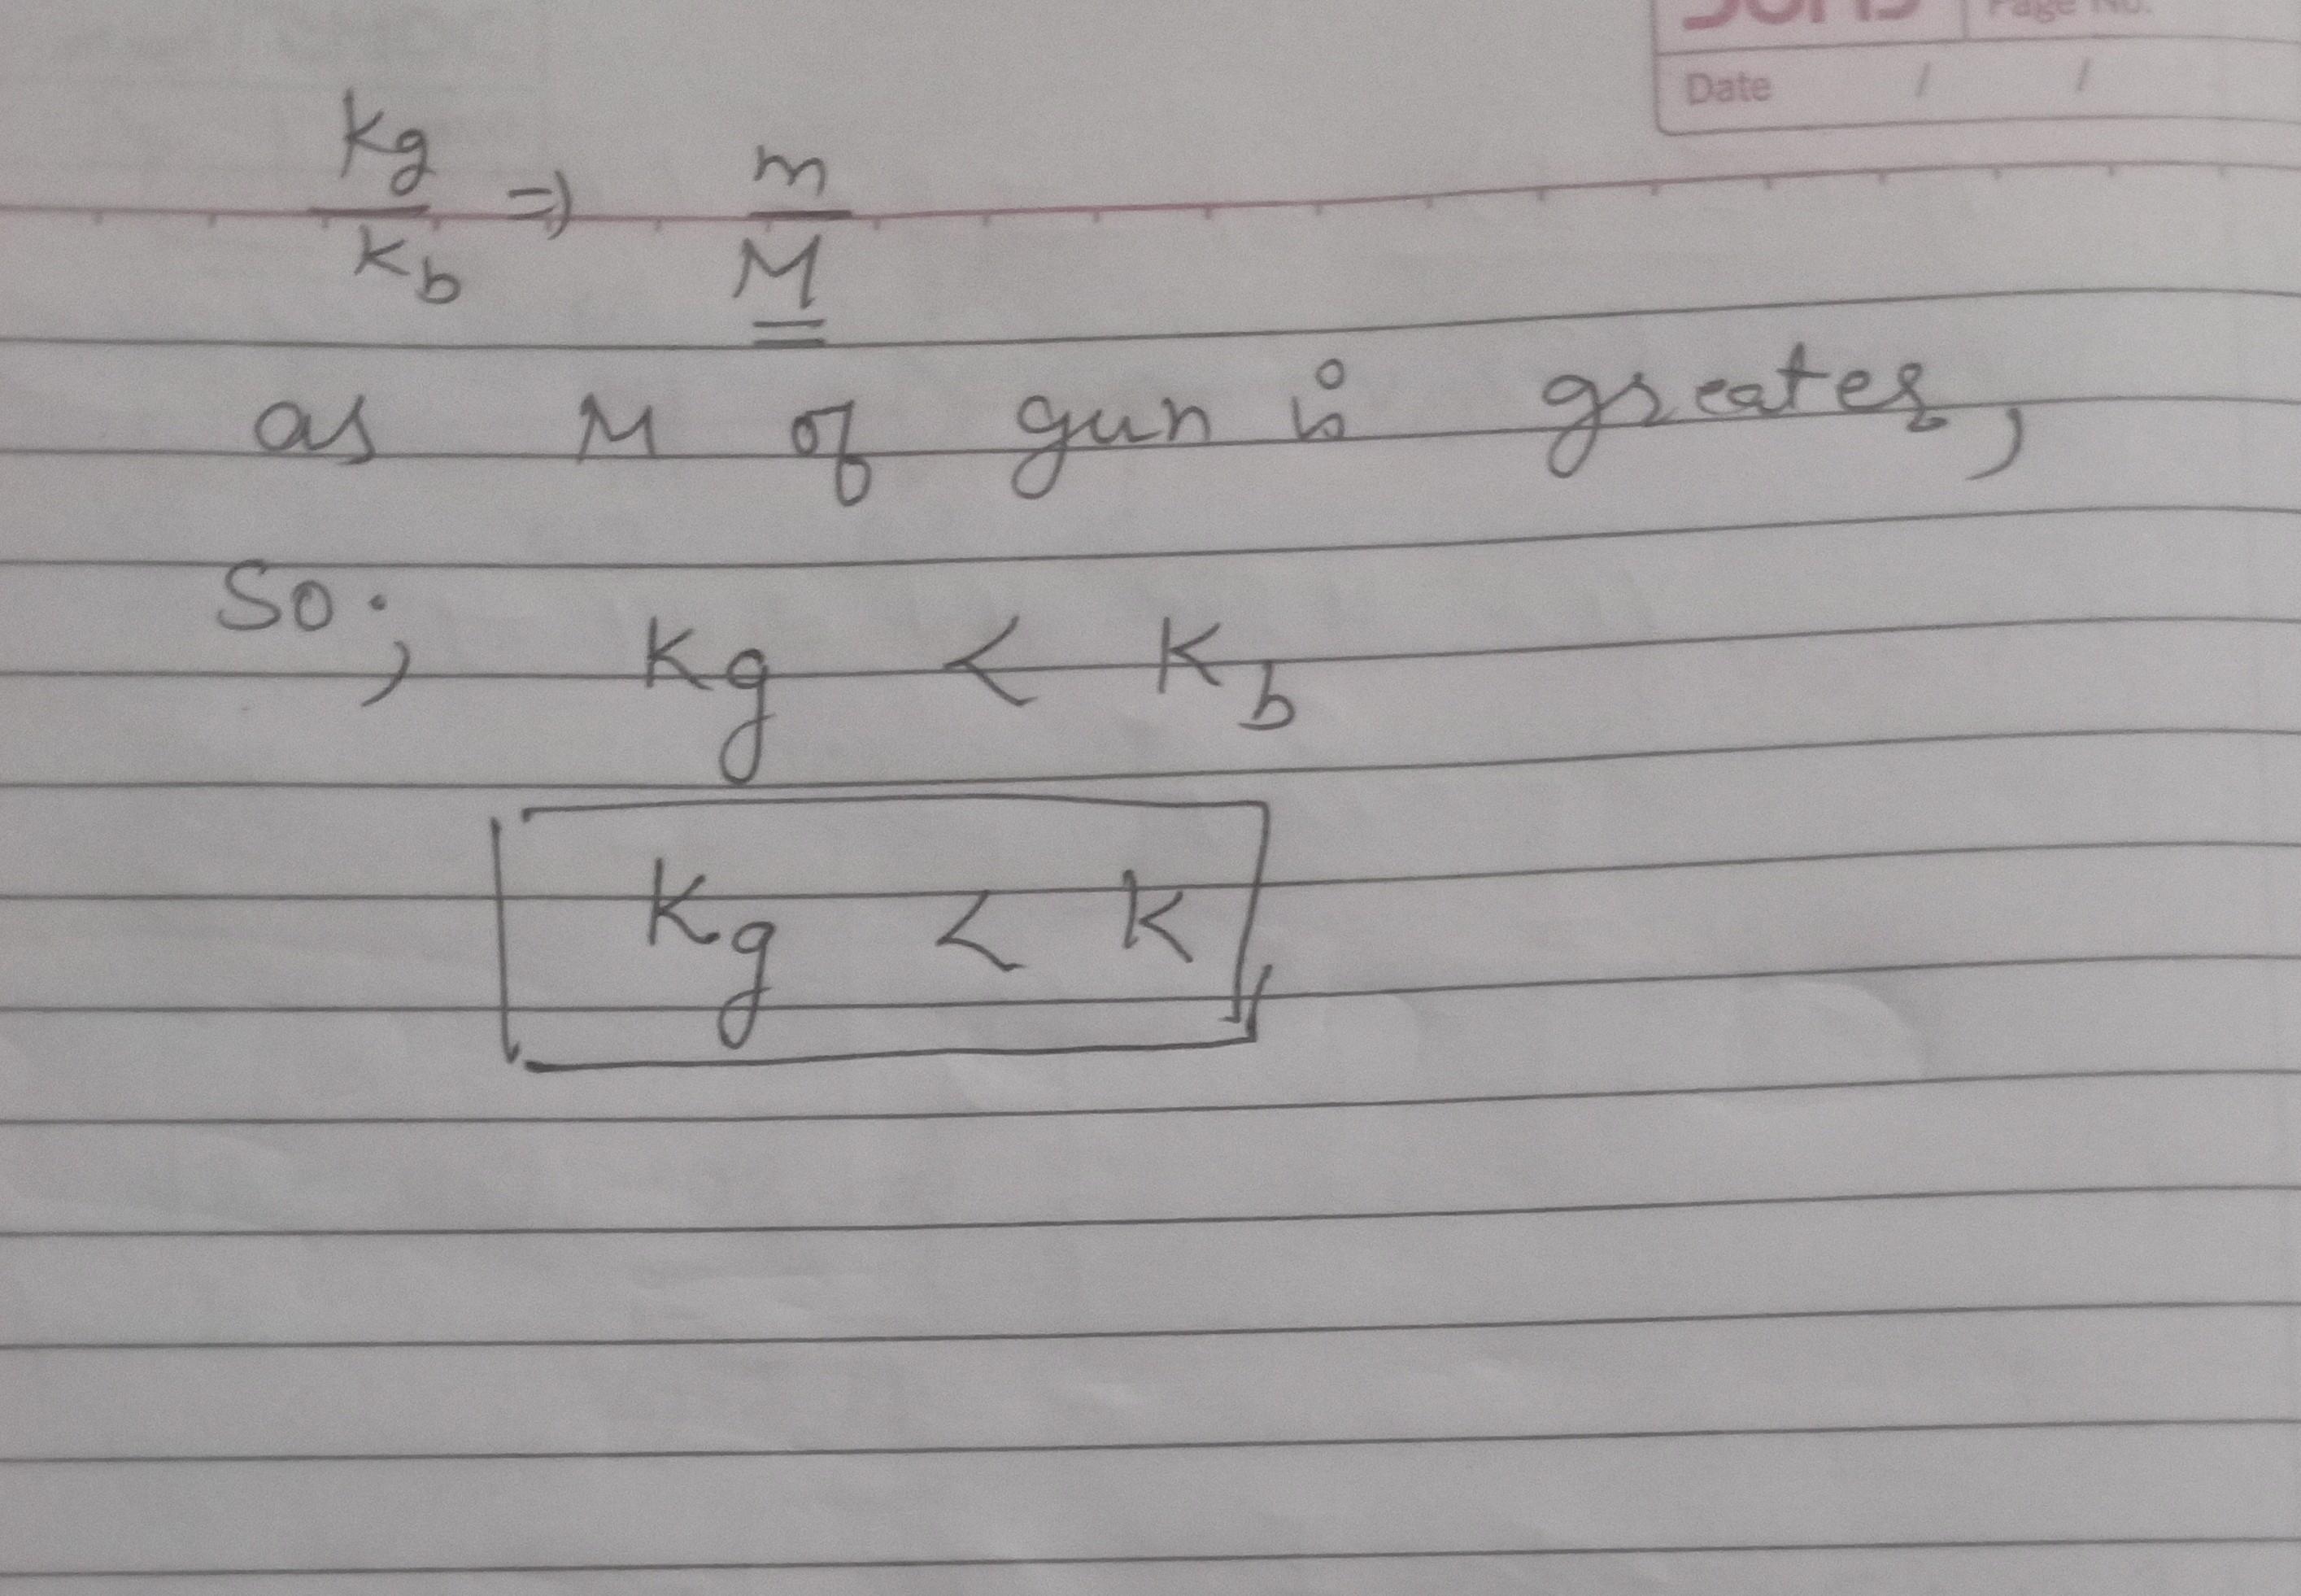 Page No.
Date / /
Kg / Kb => m / M
as M of gun is greater,
So; Kg < Kb
Kg < K